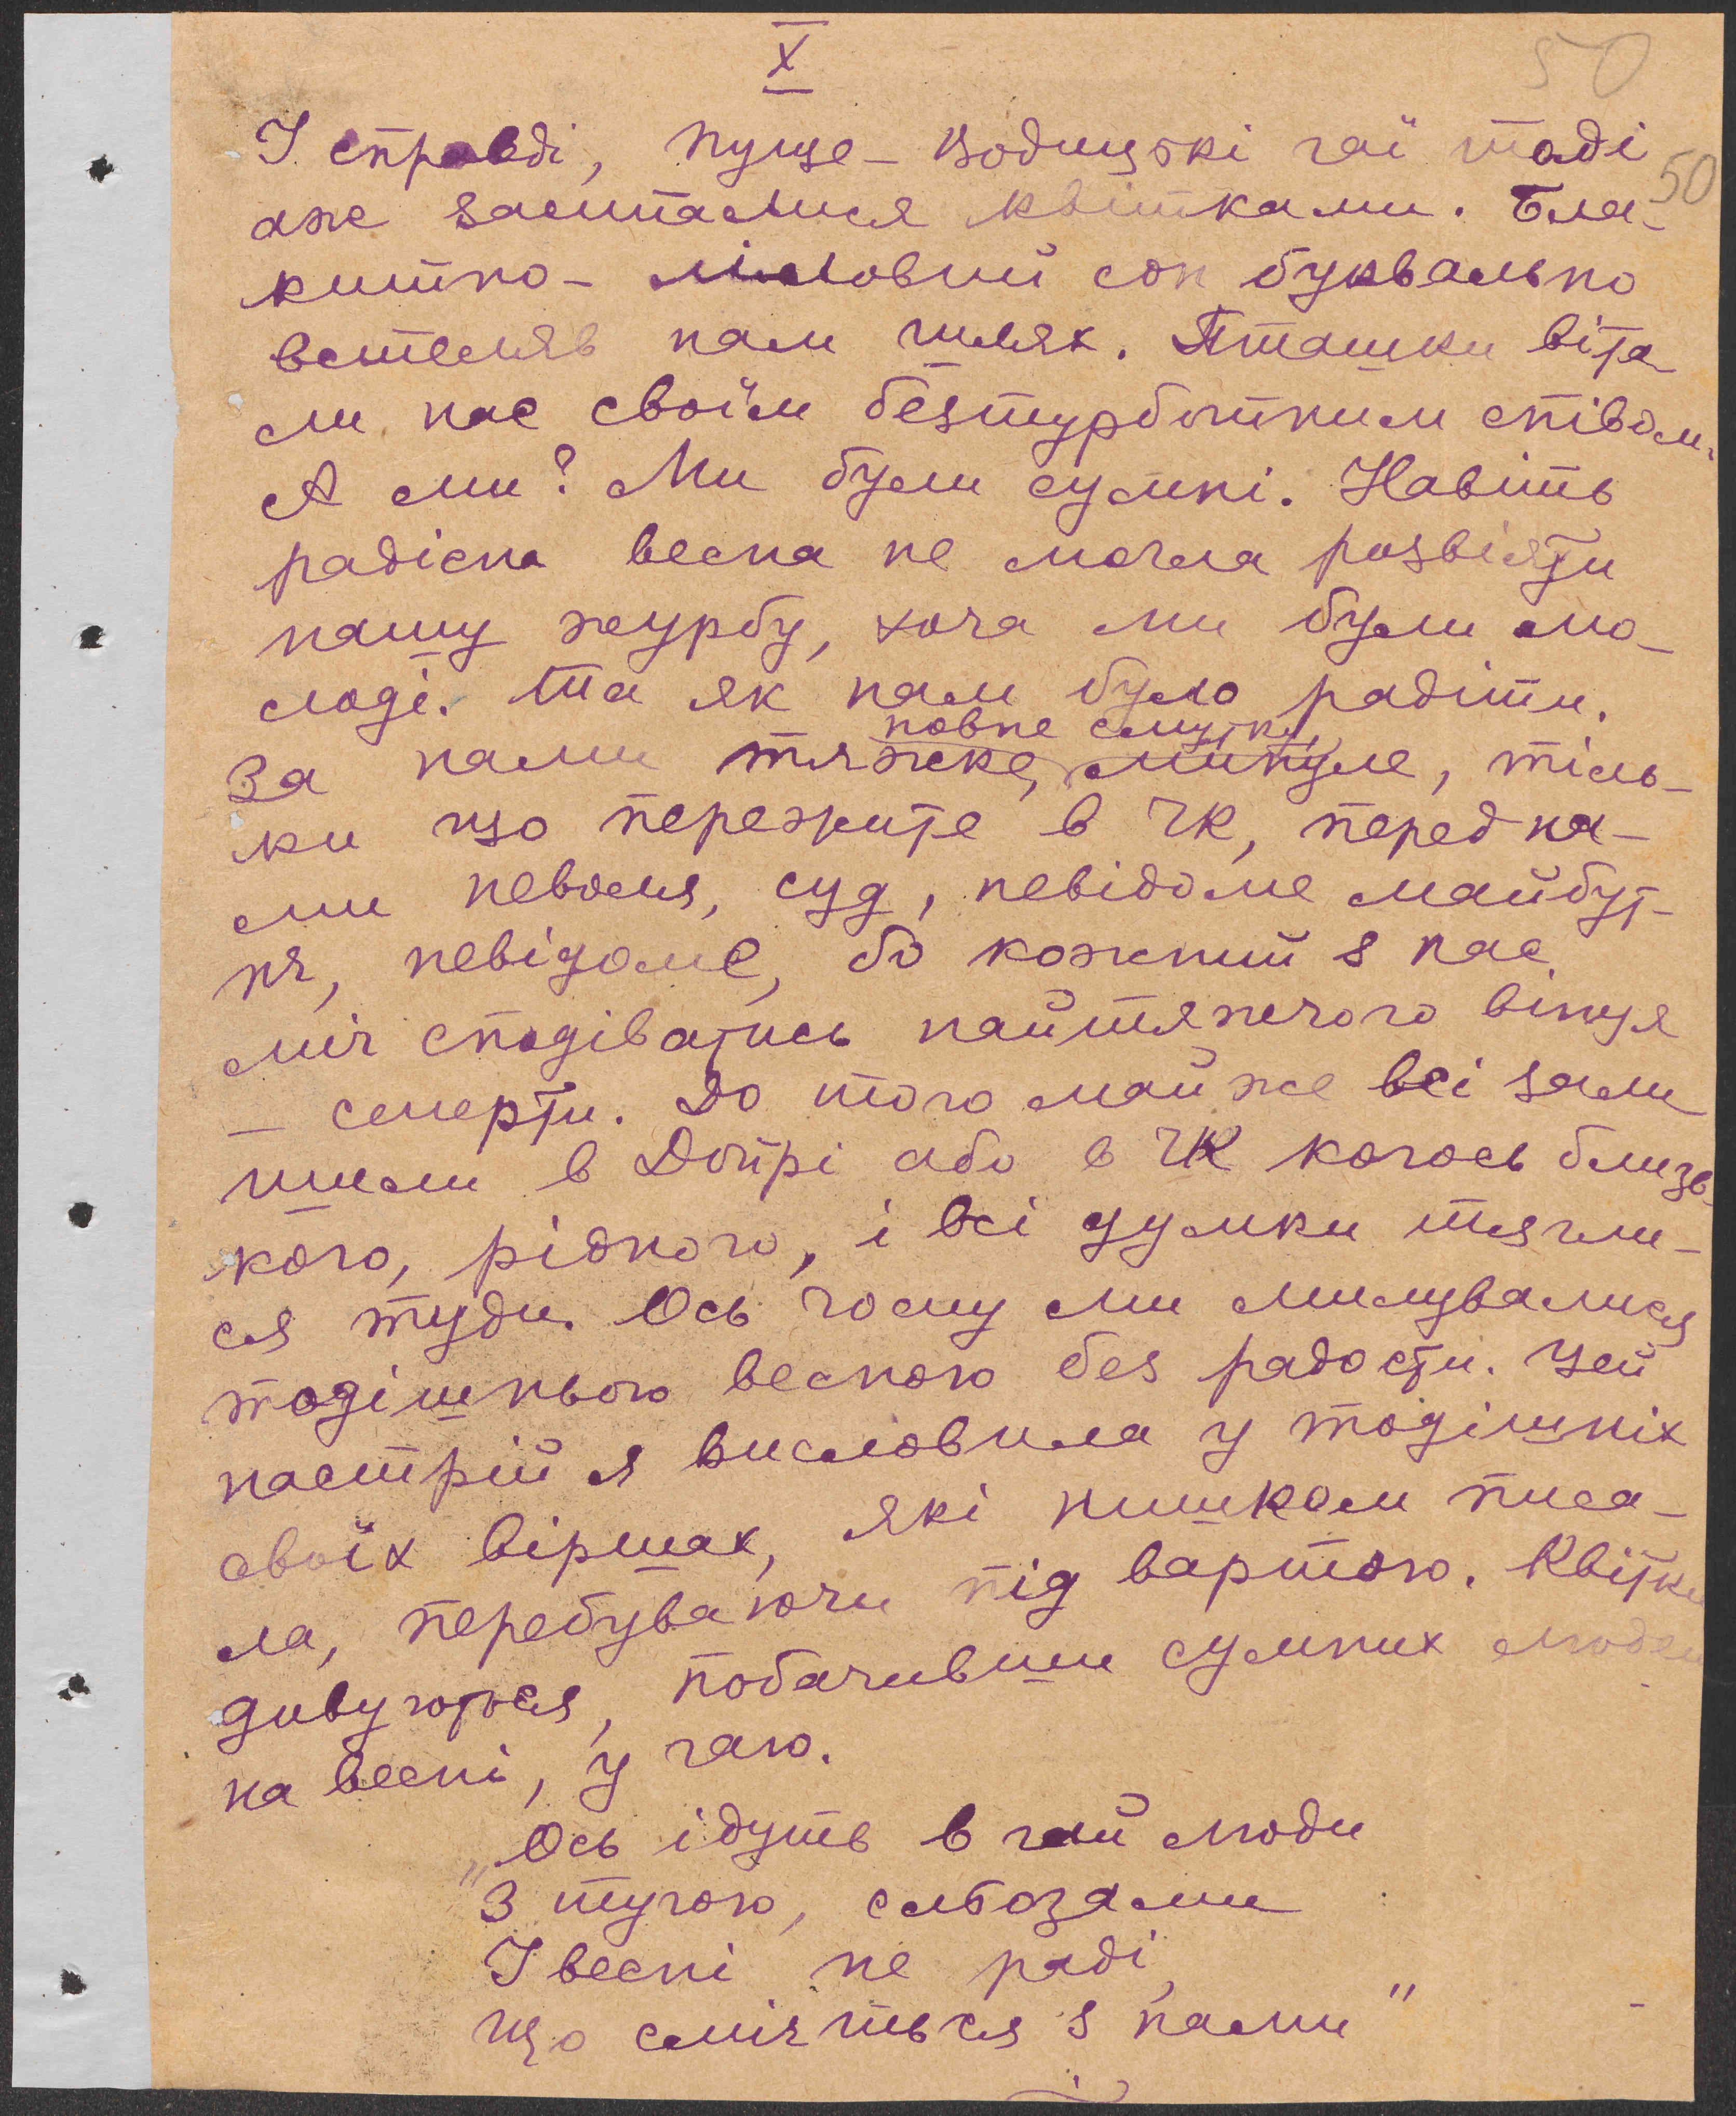 X
50
І справді, Пуще-Водицькі гаї тоді
50
аж засипалися квітками. Бла-
китно-ліловий сон буквально
встеляв нам шлях. Пташки віта-
ли нас своїм безтурботним співом.
А ми? Ми були сумні. Навіть
радісна весна не могла розвіяти
нашу журбу, хоча ми були мо-
лоді. Та як нам було радіти.
повне смутку,
За нами тяжке, минуле, тіль-
ки що пережите в ЧК, перед на-
ми неволя, суд, невідоме майбут-
нє, невідоме, бо кожний з нас
міг сподіватись найтяжчого вінця
— смерти. До того майже всі зали
шили в Допрі або в ЧК когось близь-
кого, рідного, і всі думки тягли-
ся туди. Ось чому ми милувалися
тодішньою весною без радости. Цей
настрій я висловила у тодішніх
своїх віршах, які нишком писа-
ла, перебуваючи під вартою. Квітки
дивуються, побачивши сумних людей
на весні, у гаю.
„Ось ідуть в гай люди
З тугою, сльозами
І весні не раді,
Що сміється з нами"